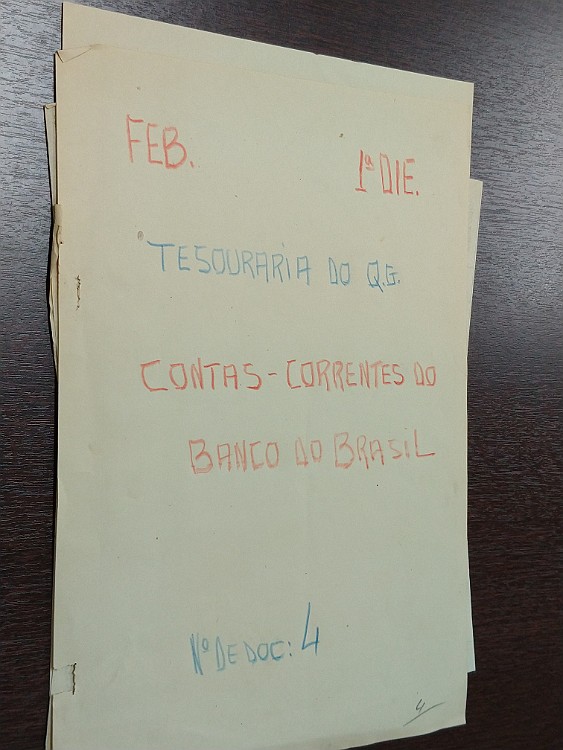 FEB. 1ª DIE.
TESOURARIA DO Q.G.
CONTAS-CORRENTES DO
BANCO DO BRASIL
Nº DE DOC: 4
4